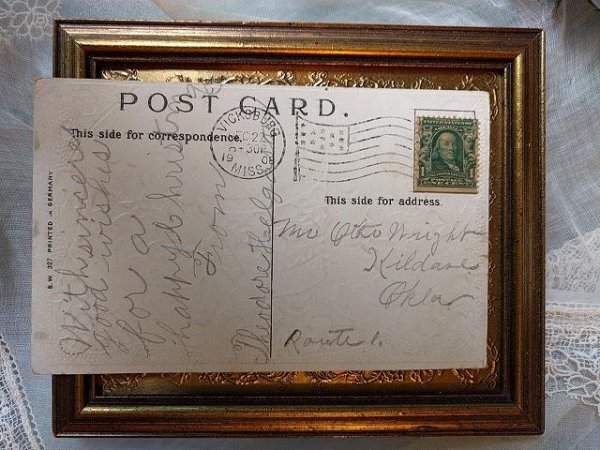 POST CARD.
This side for correspondence.
This side for address.
VICKSBURG
DEC 22
3-30P
1908
MISS.
With sincere
good wishes
for a
happy Christmas
from
Theodore Helg
Mr Otto Wright
Kildare
Okla
Route 1.
B. W. 327 PRINTED IN GERMANY
1